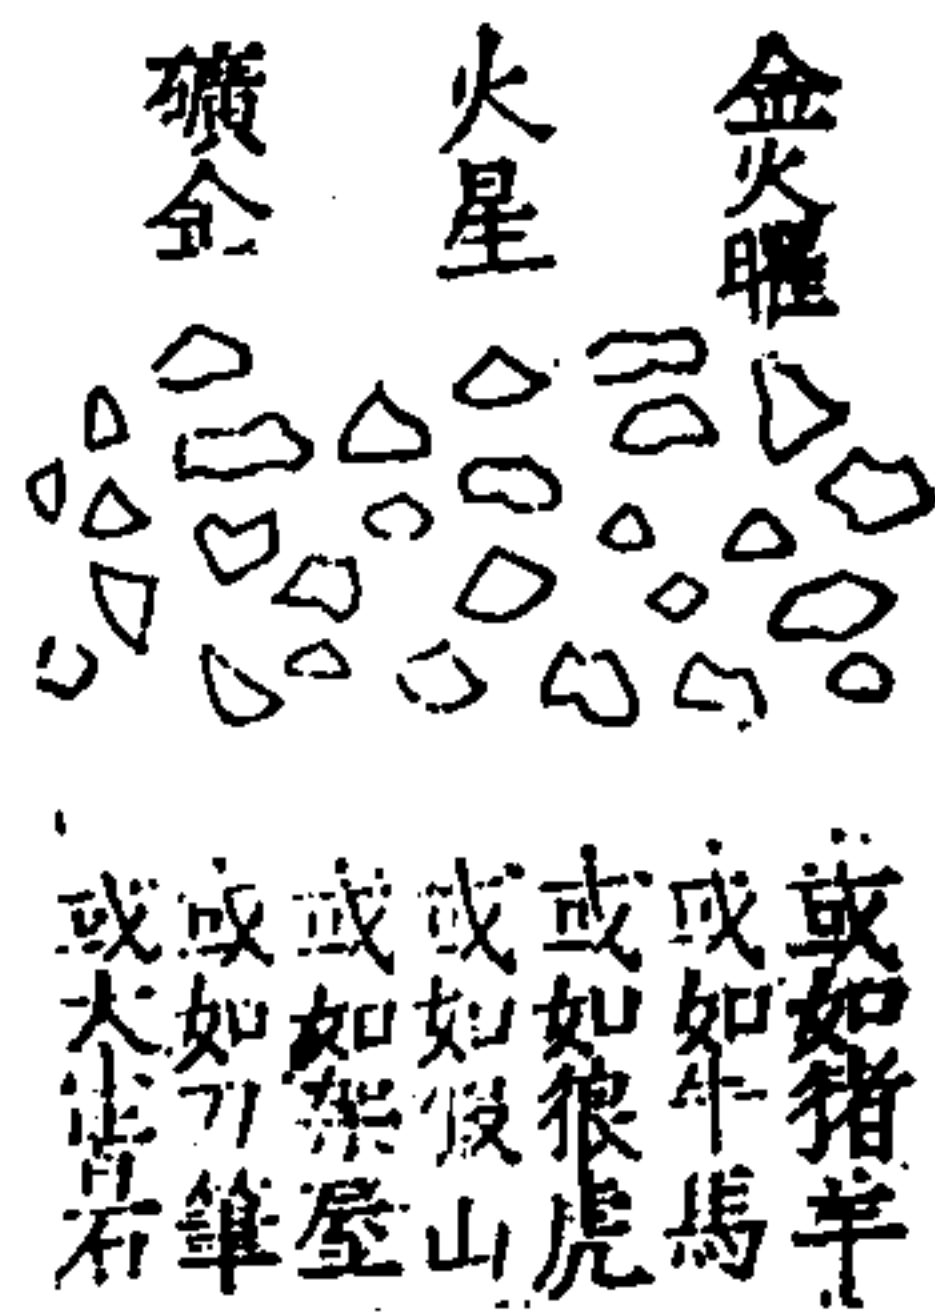 金火曜
火星
礦金
或如猪羊
或如牛馬
或如狼虎
或如假山
或如架屋
或如刀筆
或大岩石